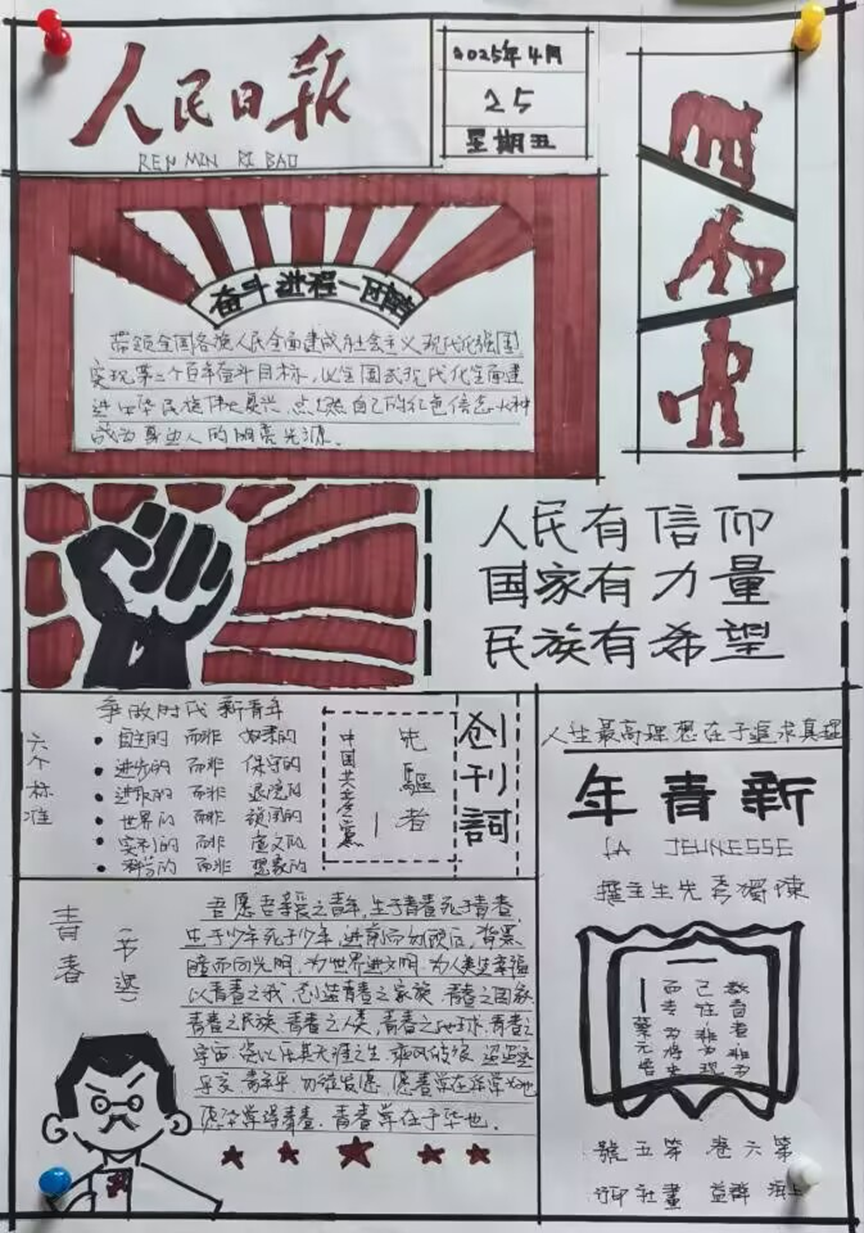 人民日报
REN MIN RI BAO
2025年4月
25
星期五
奋斗进程一团结
带领全国各族人民全面建成社会主义现代化强国
实现第二个百年奋斗目标,以全国式现代化全面建
进中华民族伟大复兴,点燃自己的红色信念火种
成为身边人的明亮光源。
人民有信仰
国家有力量
民族有希望
争做时代新青年
六个标准
自主的 而非 奴隶的
进步的 而非 保守的
进取的 而非 退隐的
世界的 而非 锁国的
实利的 而非 虚文的
科学的 而非 想象的
创刊詞
先驅者
中国共产黨
人生最高理想在于追求真理
年青新
LA JEUNESSE
撰主生先秀獨陳
教育者 非为
已往 非为现
而专为将来
一蔡元培
號五第 卷六第
印社書益群海上
青春
(节选)
吾愿吾亲爱之青年,生于青春死于青春,
生于少年死于少年,进前而勿顾后,背黑
暗而向光明,为世界进文明,为人类造幸福
以青春之我,创造青春之家族,青春之国家
青春之民族,青春之人类,青春之地球,青春之
宇宙,资以乐其无涯之生,乘风破浪